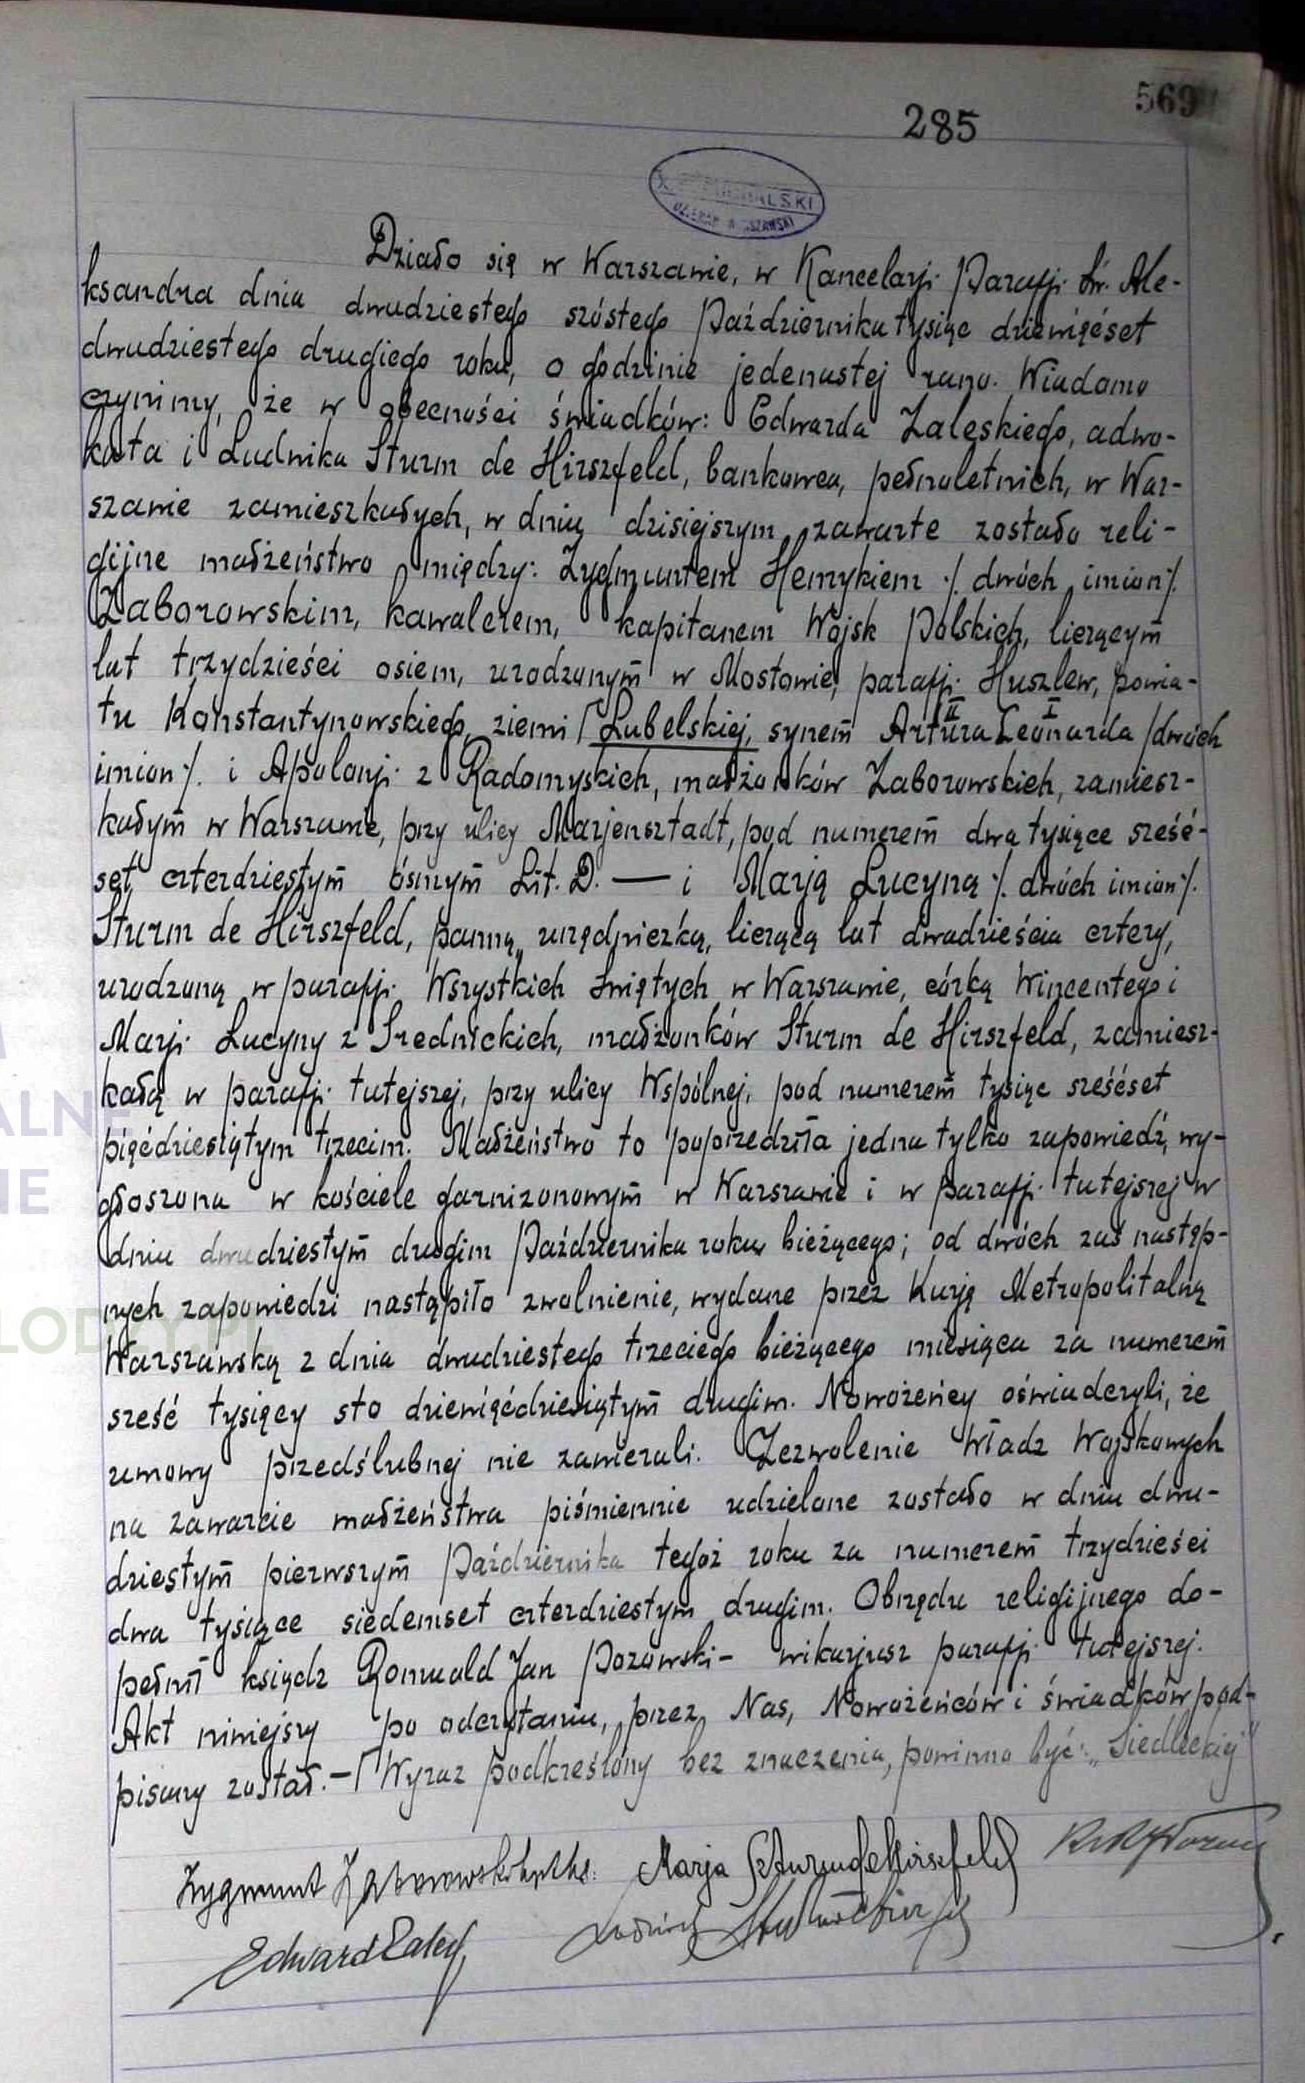 569
285
Działo się w Warszawie, w Kancelarji Parafji Św. Ale-
ksandra dnia dwudziestego szóstego Października tysiąc dziewięćset
dwudziestego drugiego roku, o godzinie jedenastej rano. Wiadomo
czynimy, że w obecności świadków: Edwarda Zaleskiego, adwo-
kata i Ludwika Sturm de Hirszfeld, bankowca, pełnoletnich, w War-
szawie zamieszkałych, w dniu dzisiejszym zawarte zostało reli-
gijne małżeństwo między: Zygmuntem Henrykiem ./. dwóch imion ./.
Zaborowskim, kawalerem, kapitanem Wojsk Polskich, liczącym
lat trzydzieści osiem, urodzonym w Mostowie, parafji Huszlew, powia-
tu Konstantynowskiego, ziemi / Lubelskiej, synem Artura II Leonarda I /dwóch
imion ./. i Apolonji z Radomyskich, małżonków Zaborowskich, zamiesz-
kałym w Warszawie, przy ulicy Marjensztadt, pod numerem dwa tysiące sześć-
set czterdziestym ósmym Lit. D. — i Marją Lucyną ./. dwóch imion ./.
Sturm de Hirszfeld, panną, urzędniczką, liczącą lat dwadzieścia cztery,
urodzoną w parafji Wszystkich Świętych w Warszawie, córką Wincentego i
Marji Lucyny z Srednickich, małżonków Sturm de Hirszfeld, zamiesz-
kałą w parafji tutejszej, przy ulicy Wspólnej, pod numerem tysiąc sześćset
pięćdziesiątym trzecim. Małżeństwo to poprzedziła jedna tylko zapowiedź, wy-
głoszona w kościele garnizonowym w Warszawie i w parafji tutejszej w
dniu dwudziestym drugim Października roku bieżącego; od dwóch zaś następ-
nych zapowiedzi nastąpiło zwolnienie, wydane przez Kurję Metropolitalną
Warszawską z dnia dwudziestego trzeciego bieżącego miesiąca za numerem
sześć tysięcy sto dziewięćdziesiątym drugim. Nowożeńcy oświadczyli, że
umowy przedślubnej nie zawierali. Zezwolenie Władz Wojskowych
na zawarcie małżeństwa piśmiennie udzielone zostało w dniu dwu-
dziestym pierwszym Października tegoż roku za numerem trzydzieści
dwa tysiące siedemset czterdziestym drugim. Obrzędu religijnego do-
pełnił ksiądz Romuald Jan - wikarjusz parafji tutejszej.
Akt niniejszy po odczytaniu, przez Nas, Nowożeńców i świadków pod-
pisany został. — / Wyraz podkreślony bez znaczenia, powinno być: „Siedleckiej"
Zygmunt Zaborowski kpt. Marja Szturm de Hirszfeld
Edward Zaleski